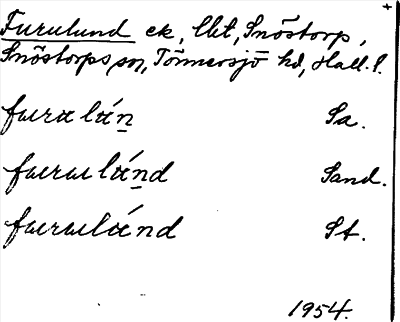 Furulund ek, lht, Snöstorp,
Snöstorps sn, Tönnersjö hd, Hall. l.
furalán Sa.
furulánd Sand.
furulánd St.
1954.